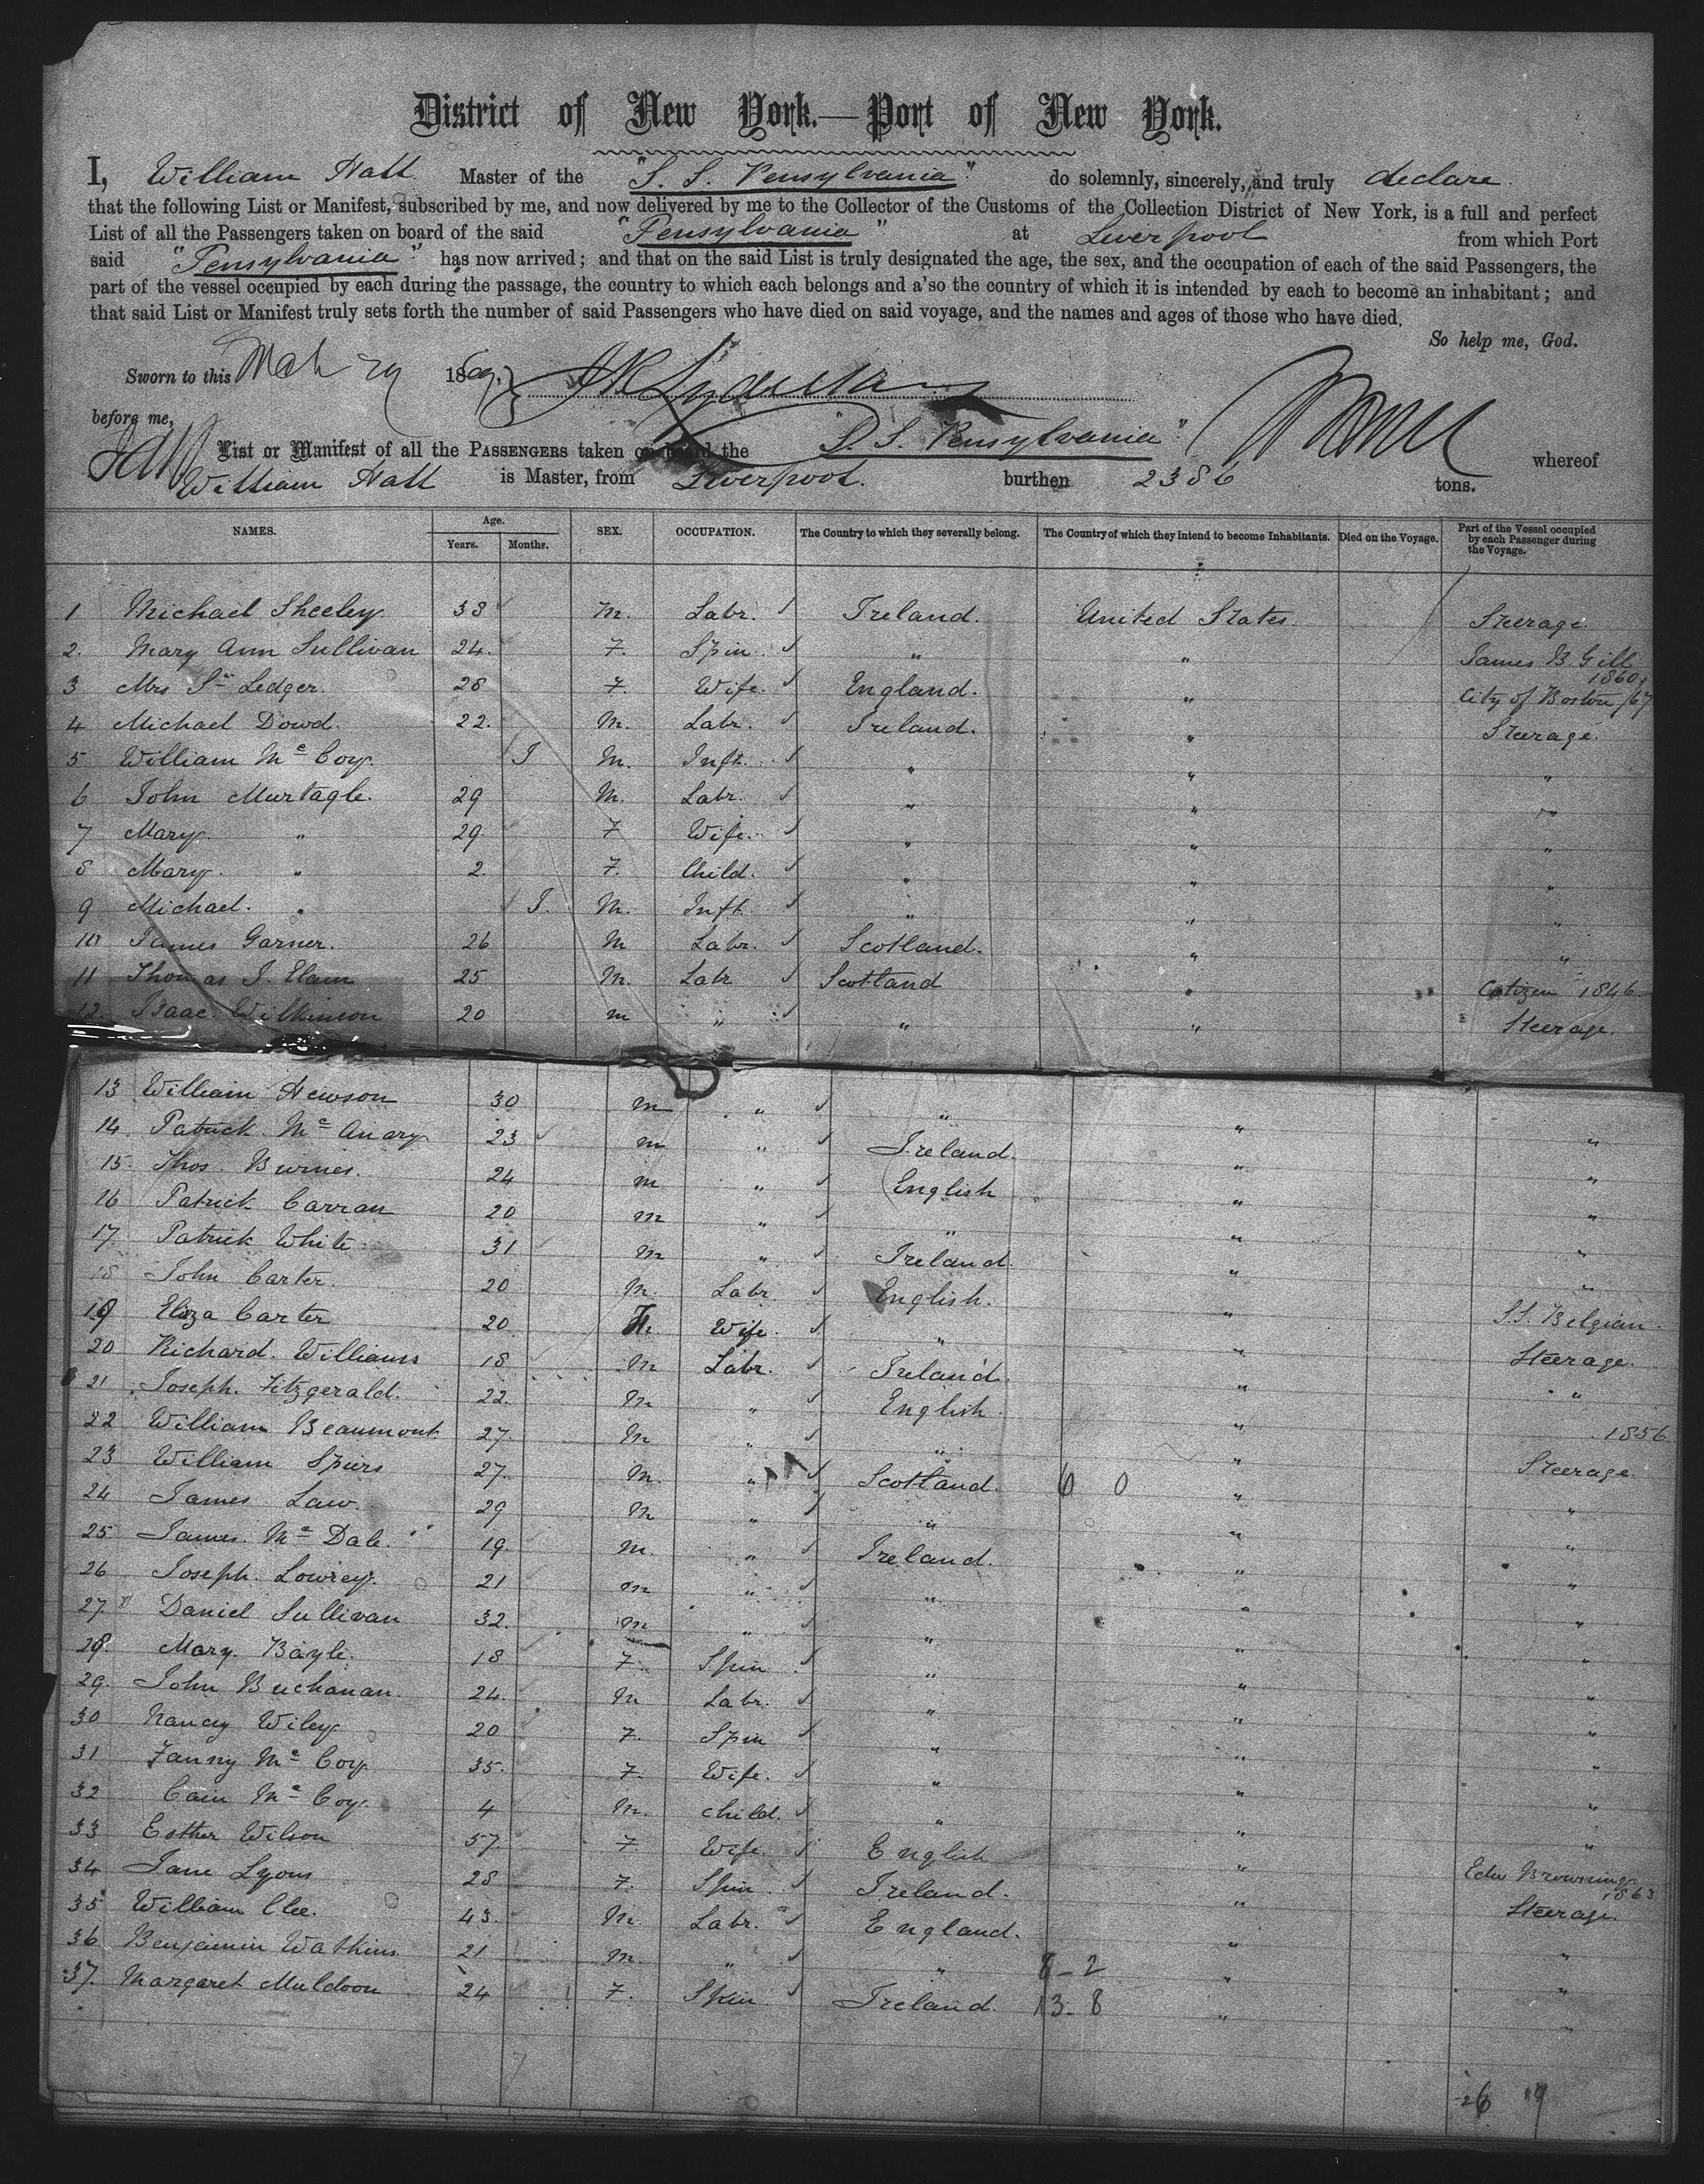 District of New York.—Port of New York.
I, William Hall Master of the "S. S. Pensylvania" do solemnly, sincerely, and truly declare
that the following List or Manifest, subscribed by me, and now delivered by me to the Collector of the Customs of the Collection District of New York, is a full and perfect
List of all the Passengers taken on board of the said "Pensylvania" at Liverpool from which Port
said "Pensylvania" has now arrived; and that on the said List is truly designated the age, the sex, and the occupation of each of the said Passengers, the
part of the vessel occupied by each during the passage, the country to which each belongs and a'so the country of which it is intended by each to become an inhabitant; and
that said List or Manifest truly sets forth the number of said Passengers who have died on said voyage, and the names and ages of those who have died.
So help me, God.
Sworn to this Mch 29 1869.
before me,
List or Manifest of all the PASSENGERS taken on board the "S. S. Pensylvania" whereof
William Hall is Master, from Liverpool. burthen 2386 tons.
NAMES. Age. Years. Months. SEX. OCCUPATION. The Country to which they severally belong. The Country of which they intend to become Inhabitants. Died on the Voyage. Part of the Vessel occupied by each Passenger during the Voyage.
1 Michael Sheeley 33 M. Labr. Ireland. United States. Steerage.
2. Mary Ann Sullivan 24. F. Spin " " James B. Gill 1860
3 Mrs St Ledger. 28 F. Wife. England. " City of Boston /67
4 Michael Dowd. 22. M. Labr. Ireland. " Steerage.
5 William Mc Coy. I M. Inft. " " "
6 John Murtagle. 29 M. Labr. " " "
7 Mary. " 29. F Wife. " " "
8 Mary. " 2. F. Child. " " "
9 Michael. " I. M. Inft. " " "
10 James Garner. 26 M Labr. Scotland. " "
11 Thomas J. Elam 25 M. Labr Scotland " Citizen 1846
12. Isaac Wilkinson 20 m " " " Steerage.
13 William Hewson 30 m " " " "
14. Patrick Mc Anary 23 m " Ireland. " "
15. Thos. Burnes. 24 m " English " "
16 Patrick Carran 20 m " " " "
17. Patrick White 31 m " Ireland " "
18 John Carter. 20 M. Labr. English. " S.S. Belgian.
19 Eliza Carter 20 F. Wife. " " Steerage.
20 Richard. Williams 18 M Labr. Ireland. " "
21 Joseph. Fitzgerald. 22. M " English. " 1856
22 William Beaumont. 27. M " " " Steerage.
23 William Spurs 27. M. " Scotland. 6 0 " "
24 James Law. 29 M " " " "
25. James. Mc Dale. 19. M. " Ireland. " "
26 Joseph. Lowrey. 21 m " " " "
27. Daniel Sullivan 32. m " " " "
28. Mary. Bayle. 18 F. Spin " " "
29. John Buchanan. 24. M Labr. " " "
30 Nancy Wiley 20 F. Spin " " "
31 Fanny Mc Coy 35. F. Wife. " " "
32 Cain Mc Coy. 4 M. Child. " " "
33 Esther Wilson 57. F. Wife. English " Edw Browning. 1863
34 Jane Lyons 28 F. Spin. Ireland. " Steerage.
35 William Clee. 43. M. Labr. England. " "
36 Benjamin Watkins 21 M. " " 8-2 " "
37. Margaret Muldoon 24 F. Spin Ireland. 13-8 " "
26 "9